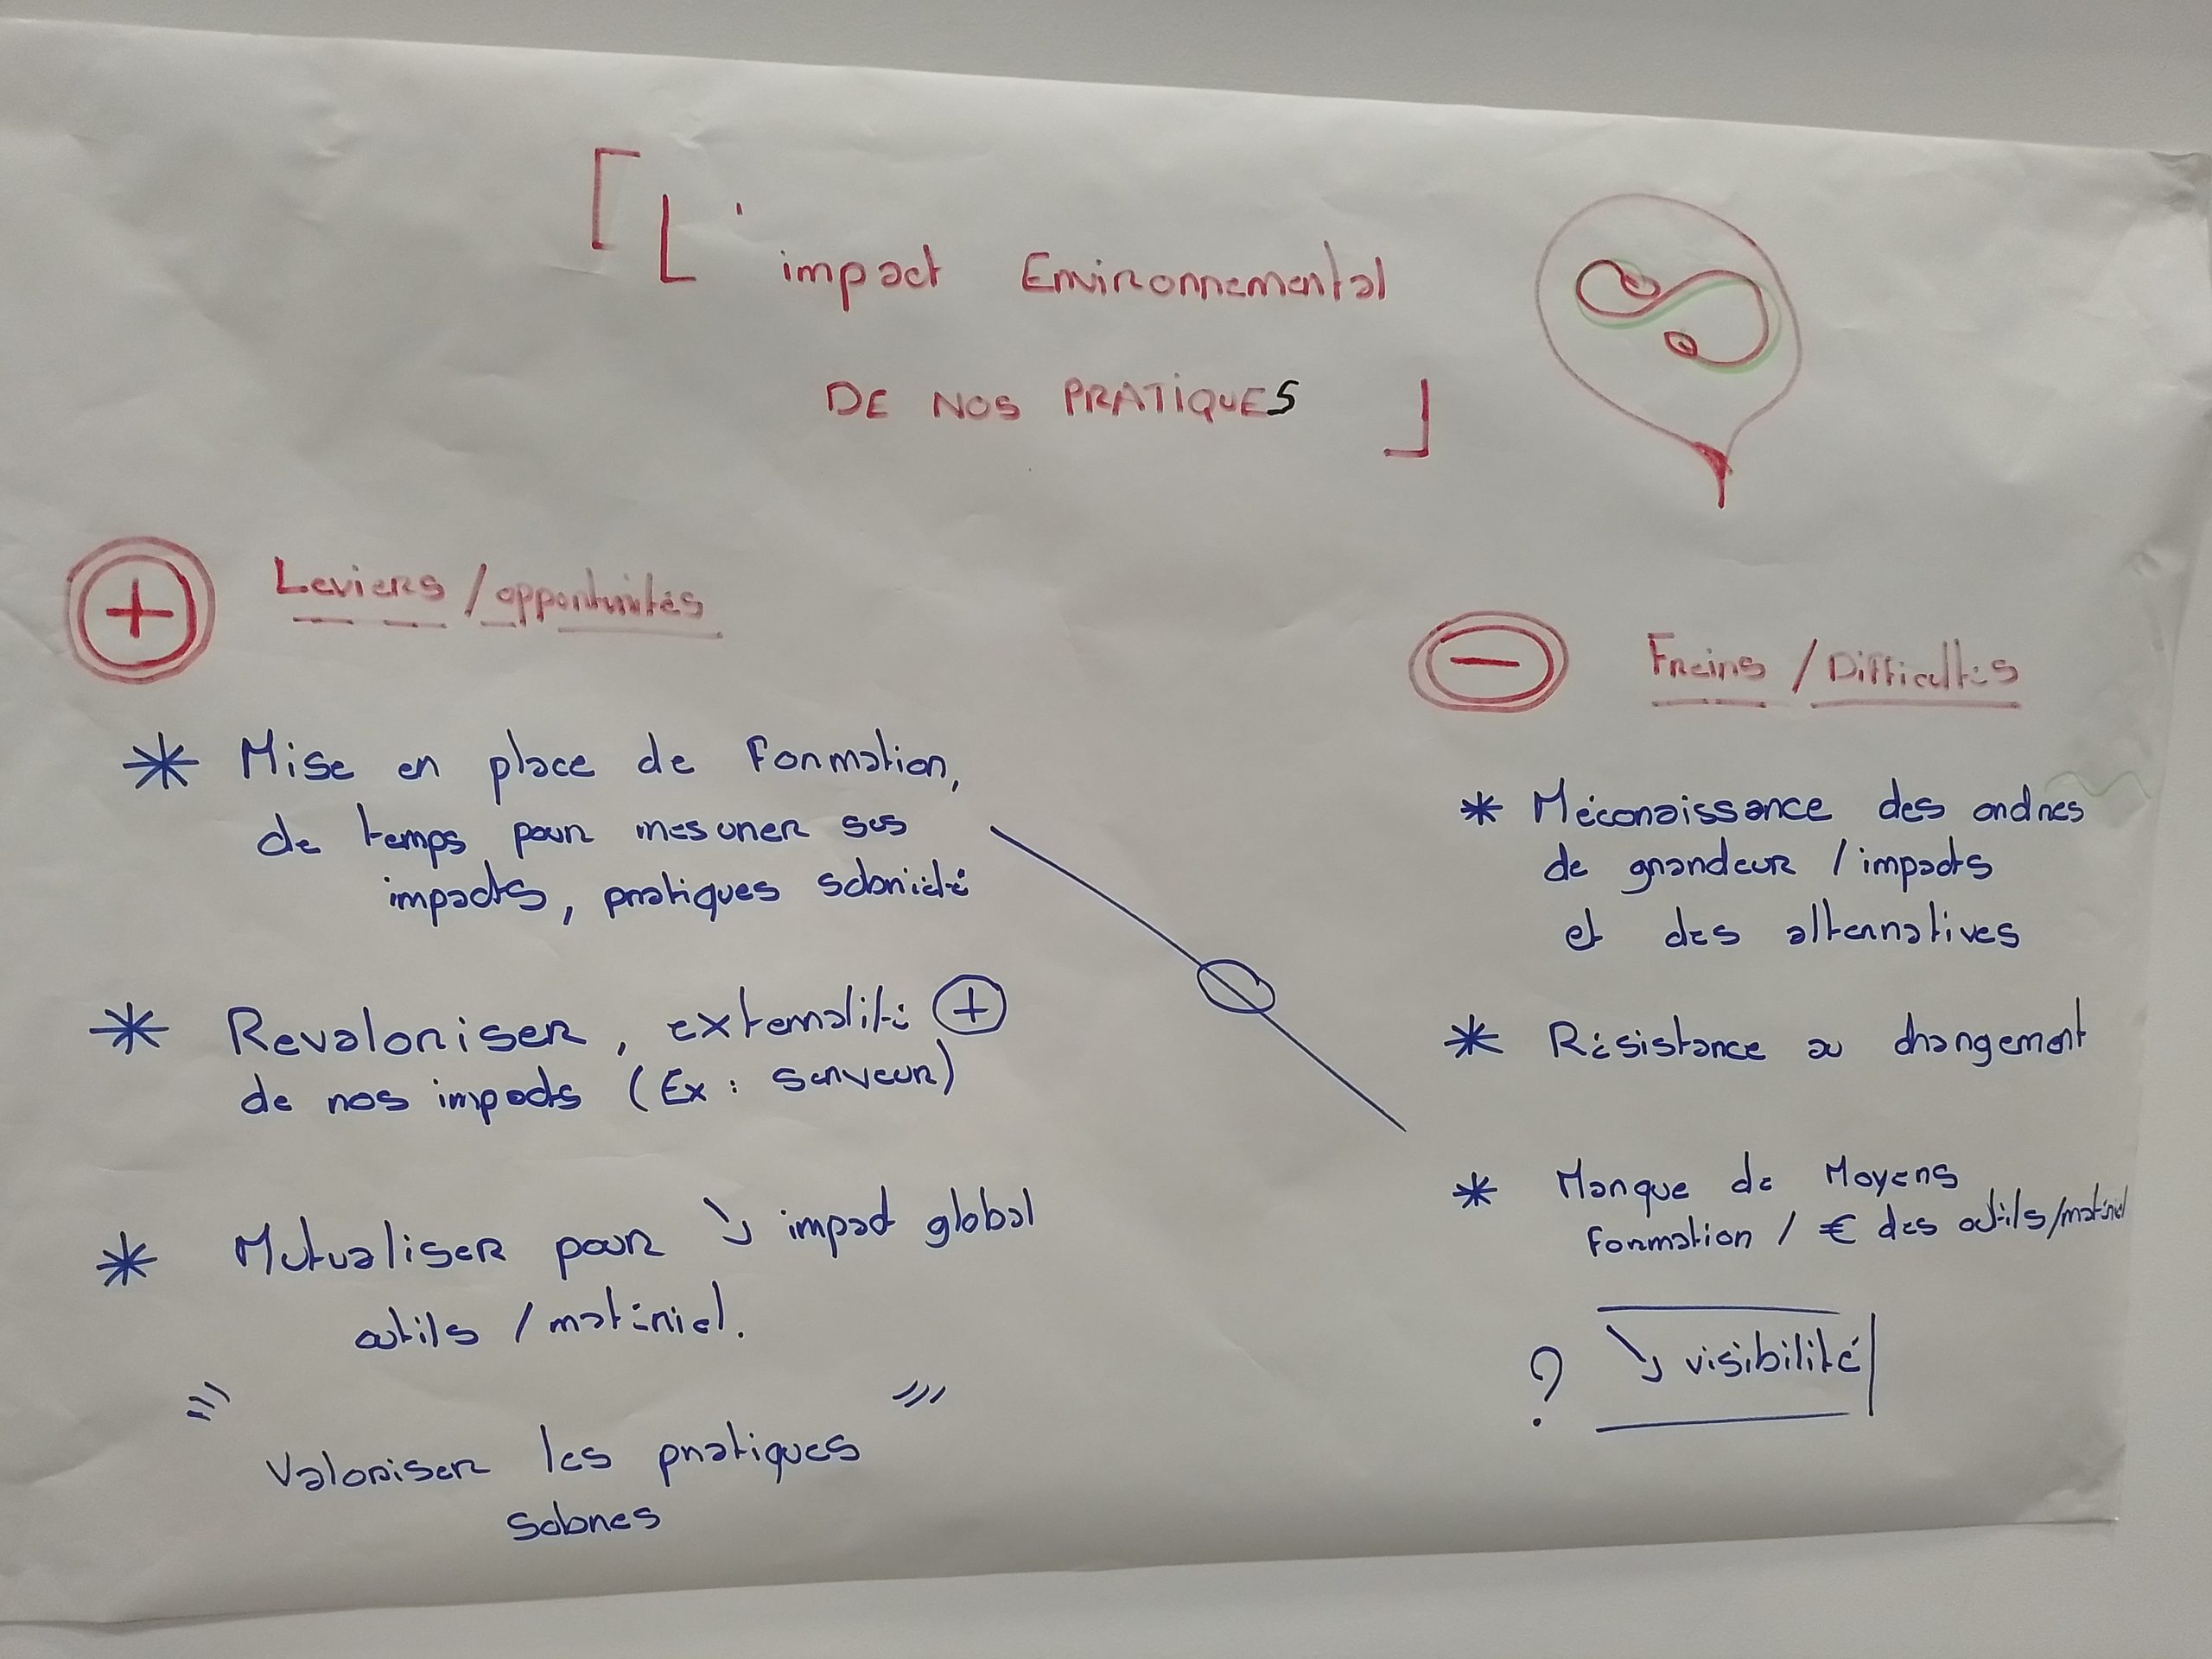 L'impact Environnemental
DE NOS PRATIQUES
+ Leviers / opportunités
* Mise en place de Formation,
de temps pour mesurer ses
impacts, pratiques sobriété
* Revaloriser, externalité +
de nos impacts (Ex : serveur)
* Mutualiser pour ↘ impact global
outils / matériel.
Valoriser les pratiques
sobres
− Freins / Difficultés
* Méconaissance des ordres
de grandeur / impacts
et des alternatives
* Résistance au changement
* Manque de Moyens
Formation / € des outils/matériel
? ↘ visibilité